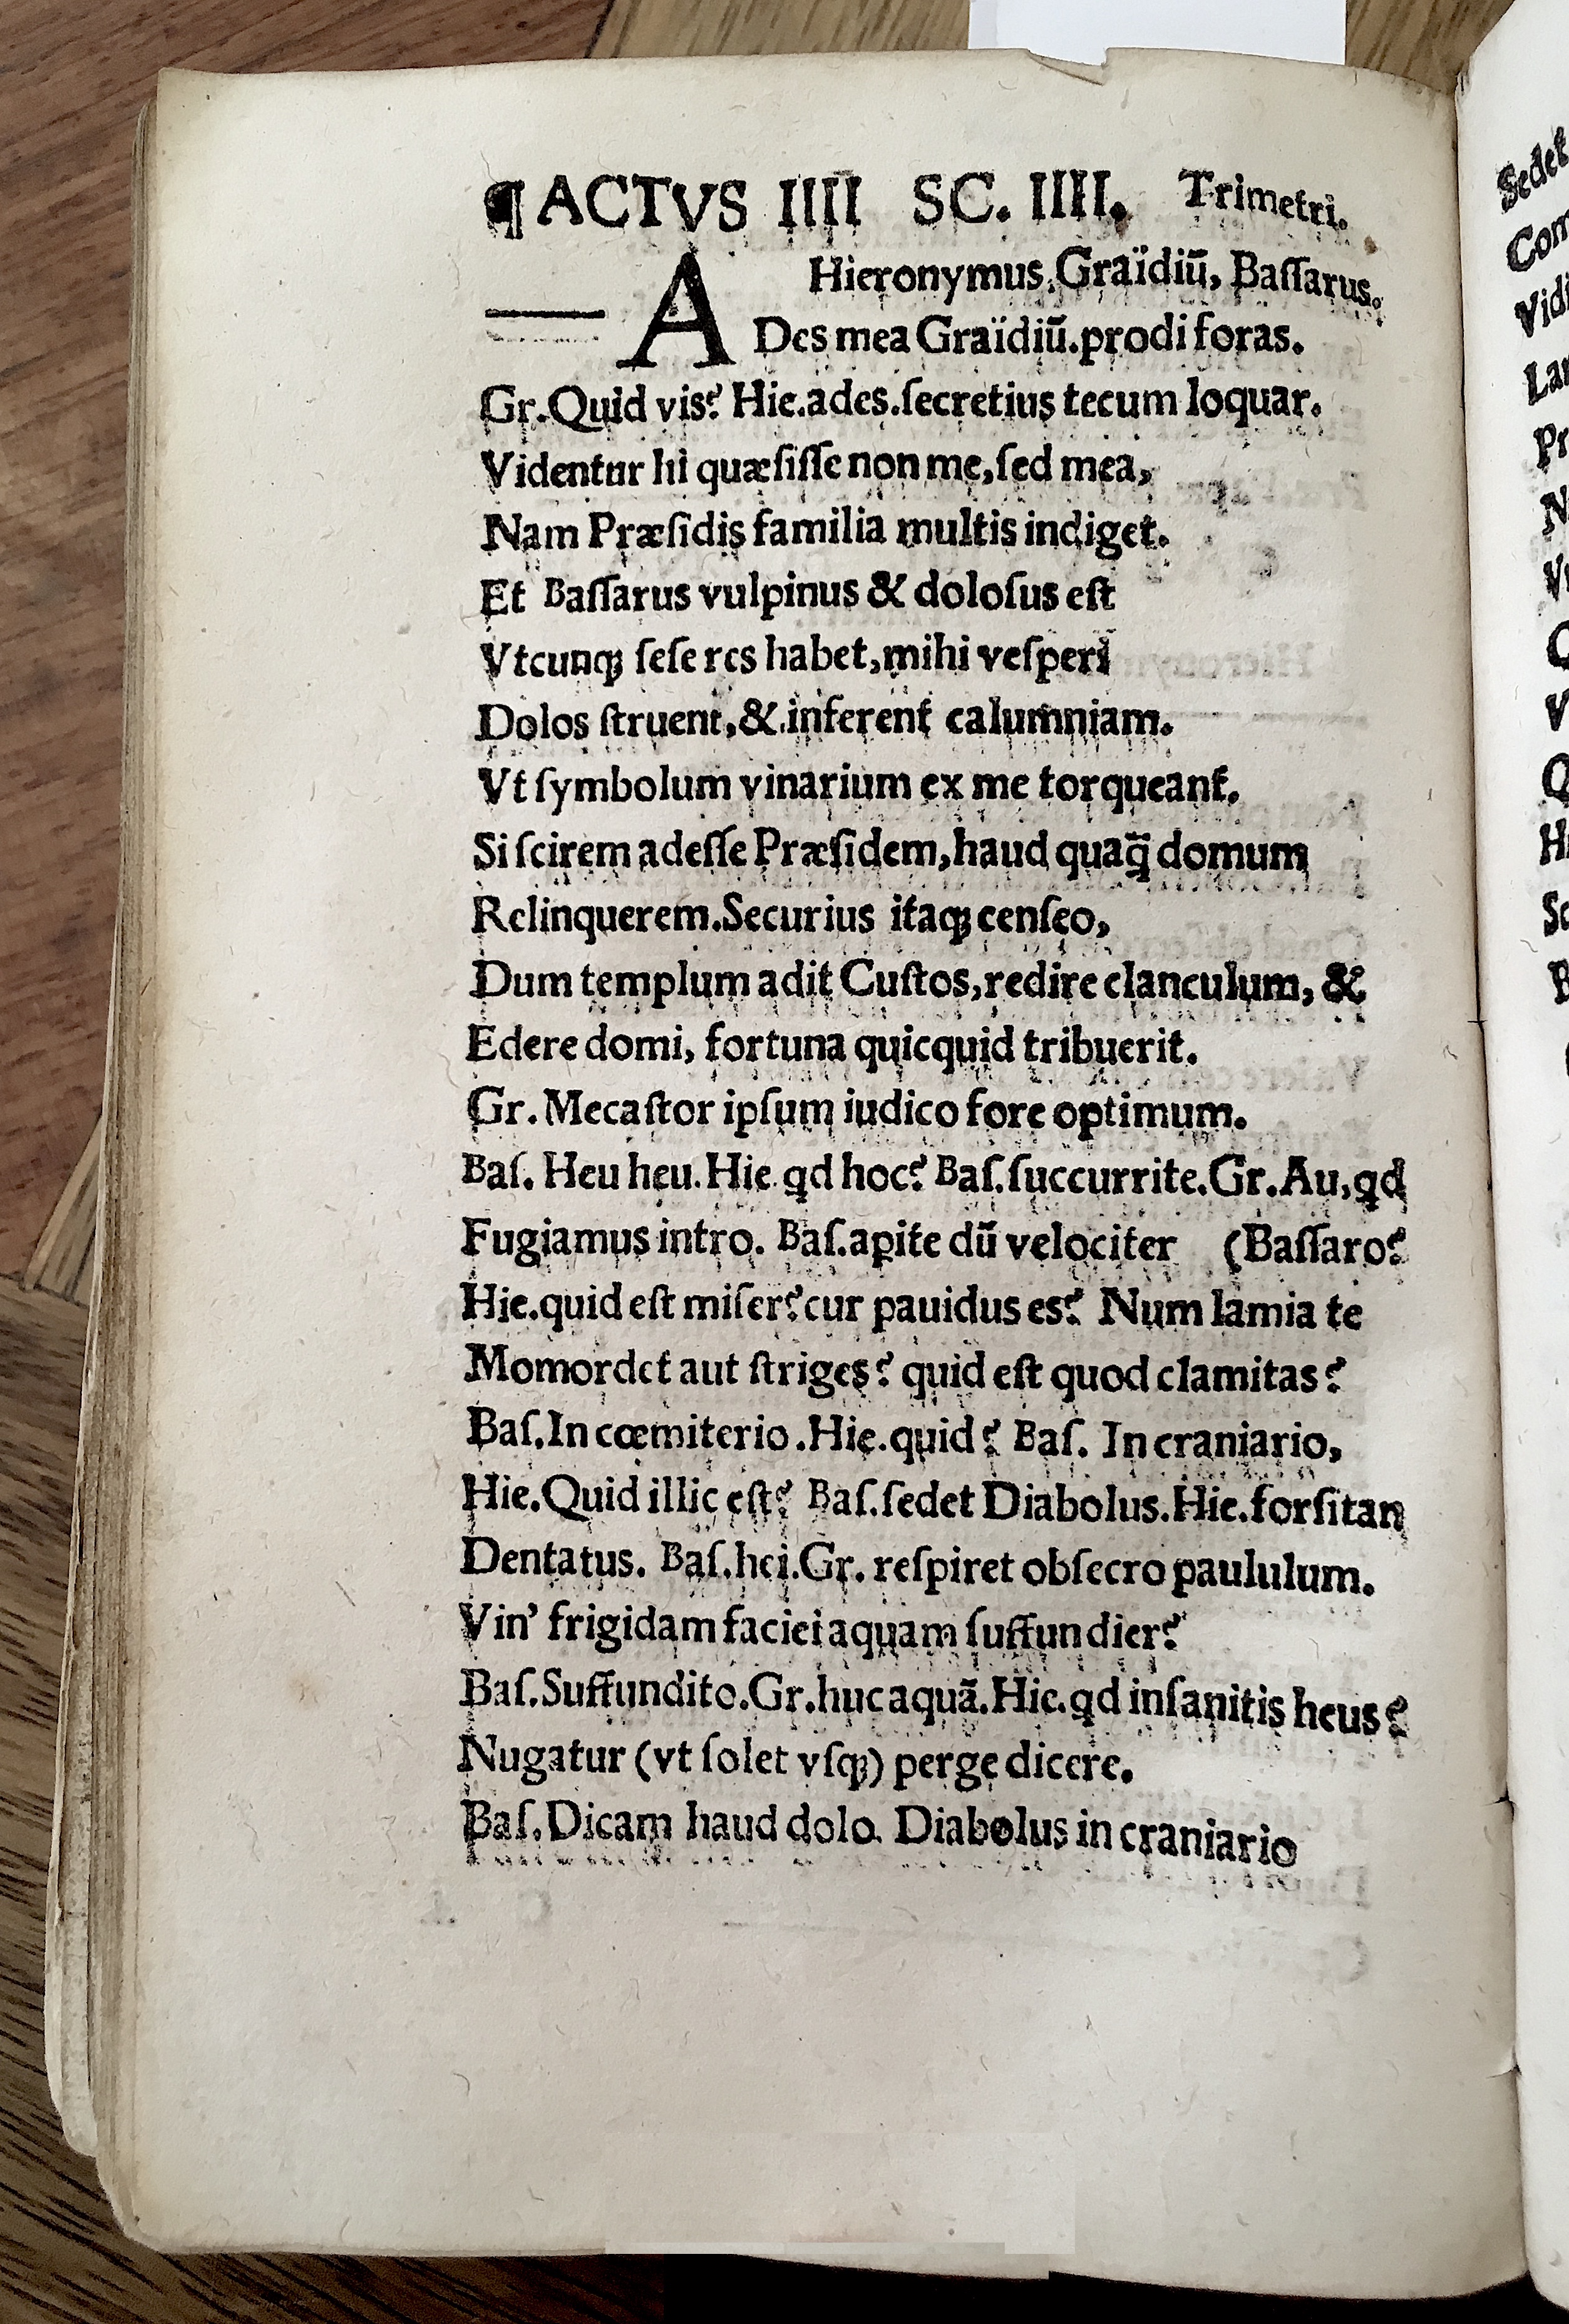 ¶ ACTVS IIII SC. IIII. Trimetri.
Hieronymus, Graïdiũ, Baſſarus.
ADes mea Graïdiũ. prodi foras.
Gr. Quid vis? Hie. ades. ſecretius tecum loquar.
Videntur hi quæſiſſe non me, ſed mea,
Nam Præſidis familia multis indiget.
Et Baſſarus vulpinus & doloſus eſt
Vtcunqꝫ ſeſe res habet, mihi veſperi
Dolos ſtruent, & inferent calumniam.
Vt ſymbolum vinarium ex me torqueant.
Si ſcirem adeſſe Præſidem, haud quaq̃ domum
Relinquerem. Securius itaqꝫ cenſeo,
Dum templum adit Cuſtos, redire clanculum, &
Edere domi, fortuna quicquid tribuerit.
Gr. Mecaſtor ipſum iudico fore optimum.
Baſ. Heu heu. Hie. qd hoc? Baſ. ſuccurrite. Gr. Au, qd
Fugiamus intro. Baſ. apite dũ velociter (Baſſaro?
Hie. quid eſt miſer? cur pauidus es? Num lamia te
Momordet aut ſtriges? quid eſt quod clamitas?
Baſ. In cœmiterio. Hie. quid? Baſ. In craniario,
Hie. Quid illic eſt? Baſ. ſedet Diabolus. Hie. forſitan
Dentatus. Baſ. hei. Gr. reſpiret obſecro paululum.
Vin' frigidam faciei aquam ſuffundier?
Baſ. Suffundito. Gr. huc aquã. Hie. qd inſanitis heus?
Nugatur (vt ſolet vſqꝫ) perge dicere.
Baſ. Dicam haud dolo. Diabolus in craniario
Sedet
Vidi